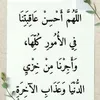 اللَّهُمَّ أَحْسِنْ عَاقِبَتَنَا
فِي الأُمُورِ كُلِّهَا،
وَأَجِرْنَا مِنْ خِزْيِ
الدُّنْيَا وَعَذَابِ الآخِرَةِ